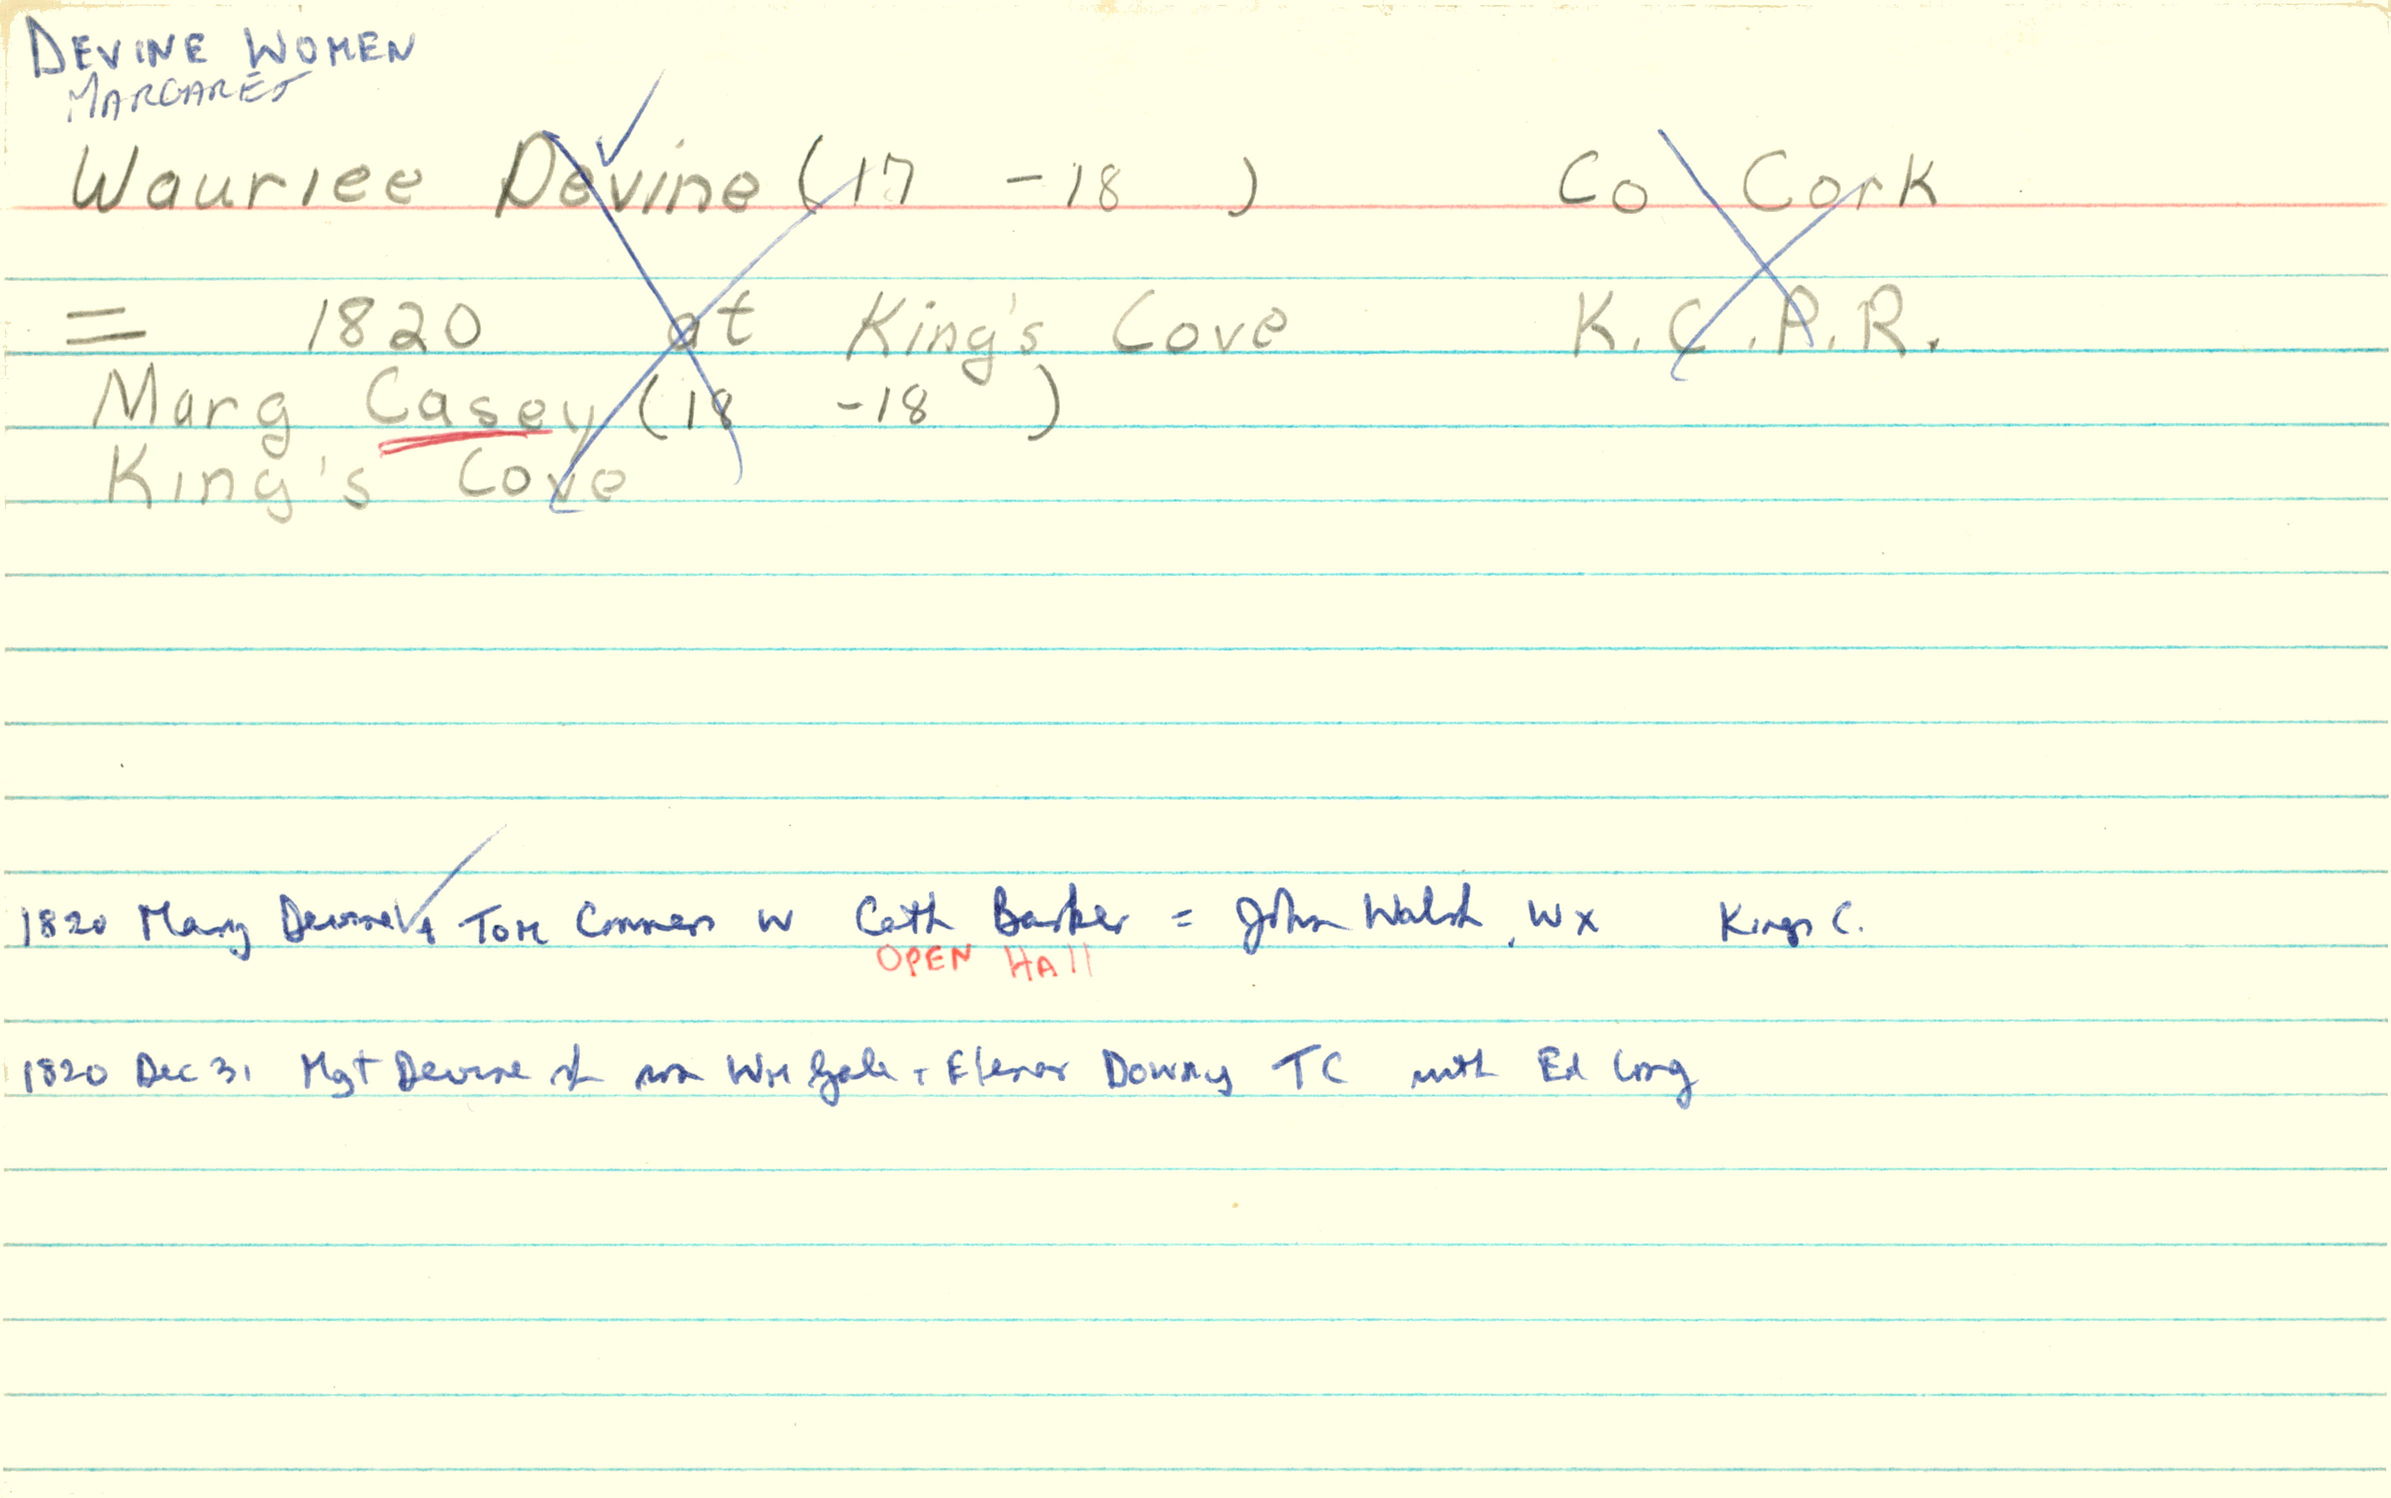 DEVINE WOMEN
MARGARET
Wauriee Devine (17 -18 ) Co Cork
= 1820 at King's Cove K.C.P.R.
Marg Casey (18 -18 )
King's Cove
1820 Mary Devine + Tom Conners w Cath Barker = John Walsh, Wx Kings C.
OPEN HAll
1820 Dec 31 Mgt Devine Wm Gale + Elenor Downy TC with Ed Long